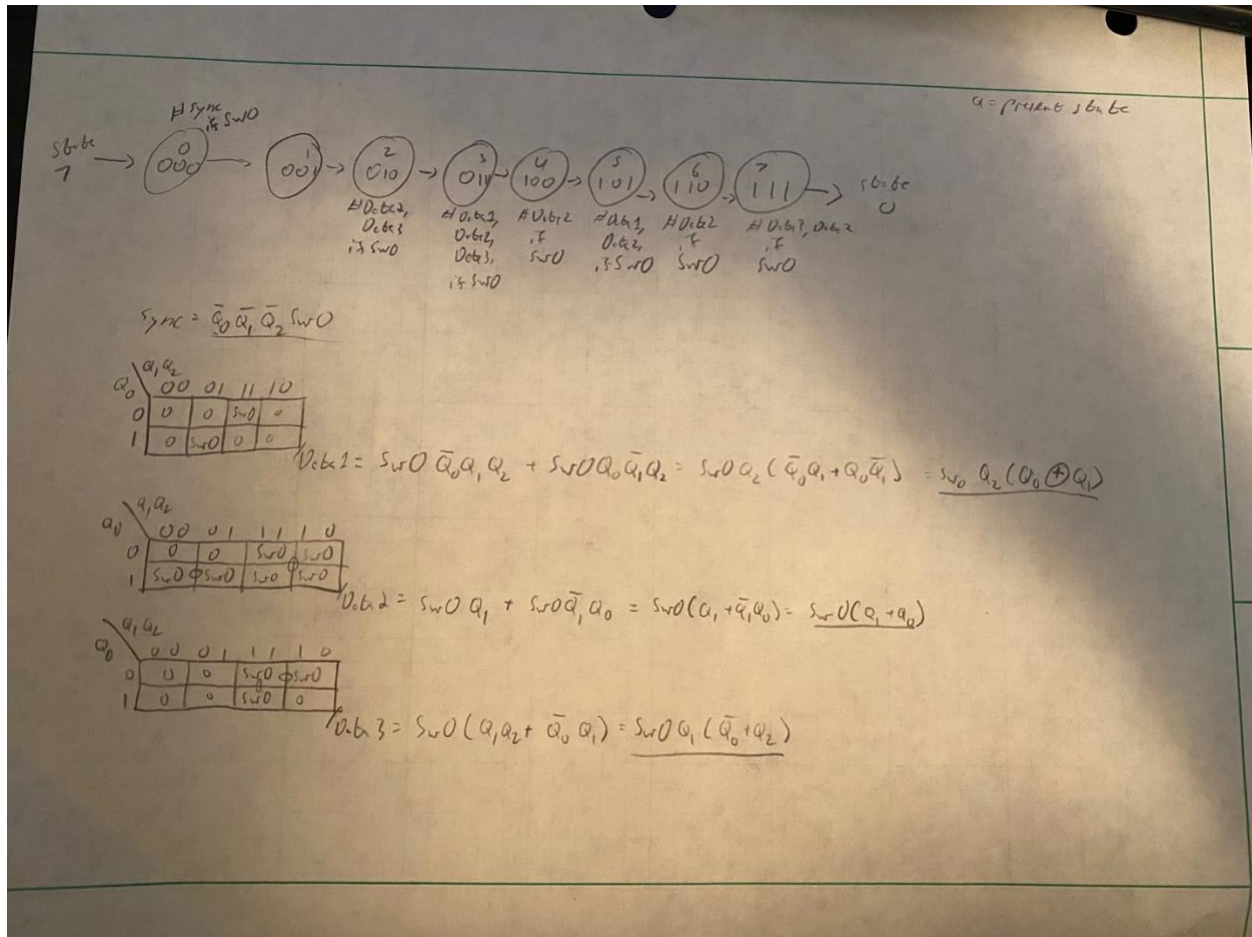 Q = present state
H Sync
if Sw0
state
7
0
000
1
001
2
010
3
011
4
100
5
101
6
110
7
111
state
0
H Data2,
Data3
if Sw0
H Data1,
Data2,
Data3,
if Sw0
H Data2
if
Sw0
H Data1,
Data2,
if Sw0
H Data2
if
Sw0
H Data3, Data2
if
Sw0
Sync = Q̄₀ Q̄₁ Q̄₂ Sw0
Q₁Q₂
Q₀ 00 01 11 10
0 0 0 Sw0 0
1 0 Sw0 0 0
Data1 = Sw0 Q̄₀Q₁Q₂ + Sw0Q₀Q̄₁Q₂ = Sw0Q₂(Q̄₀Q₁+Q₀Q̄₁) = Sw0 Q₂(Q₀⊕Q₁)
Q₁Q₂
Q₀ 00 01 11 10
0 0 0 Sw0 Sw0
1 Sw0 Sw0 Sw0 Sw0
Data2 = Sw0 Q₁ + Sw0Q̄₁Q₀ = Sw0(Q₁+Q̄₁Q₀) = Sw0(Q₁+Q₀)
Q₁Q₂
Q₀ 00 01 11 10
0 0 0 Sw0 Sw0
1 0 0 Sw0 0
Data3 = Sw0(Q₁Q₂+ Q̄₀Q₁) = Sw0Q₁(Q̄₀+Q₂)